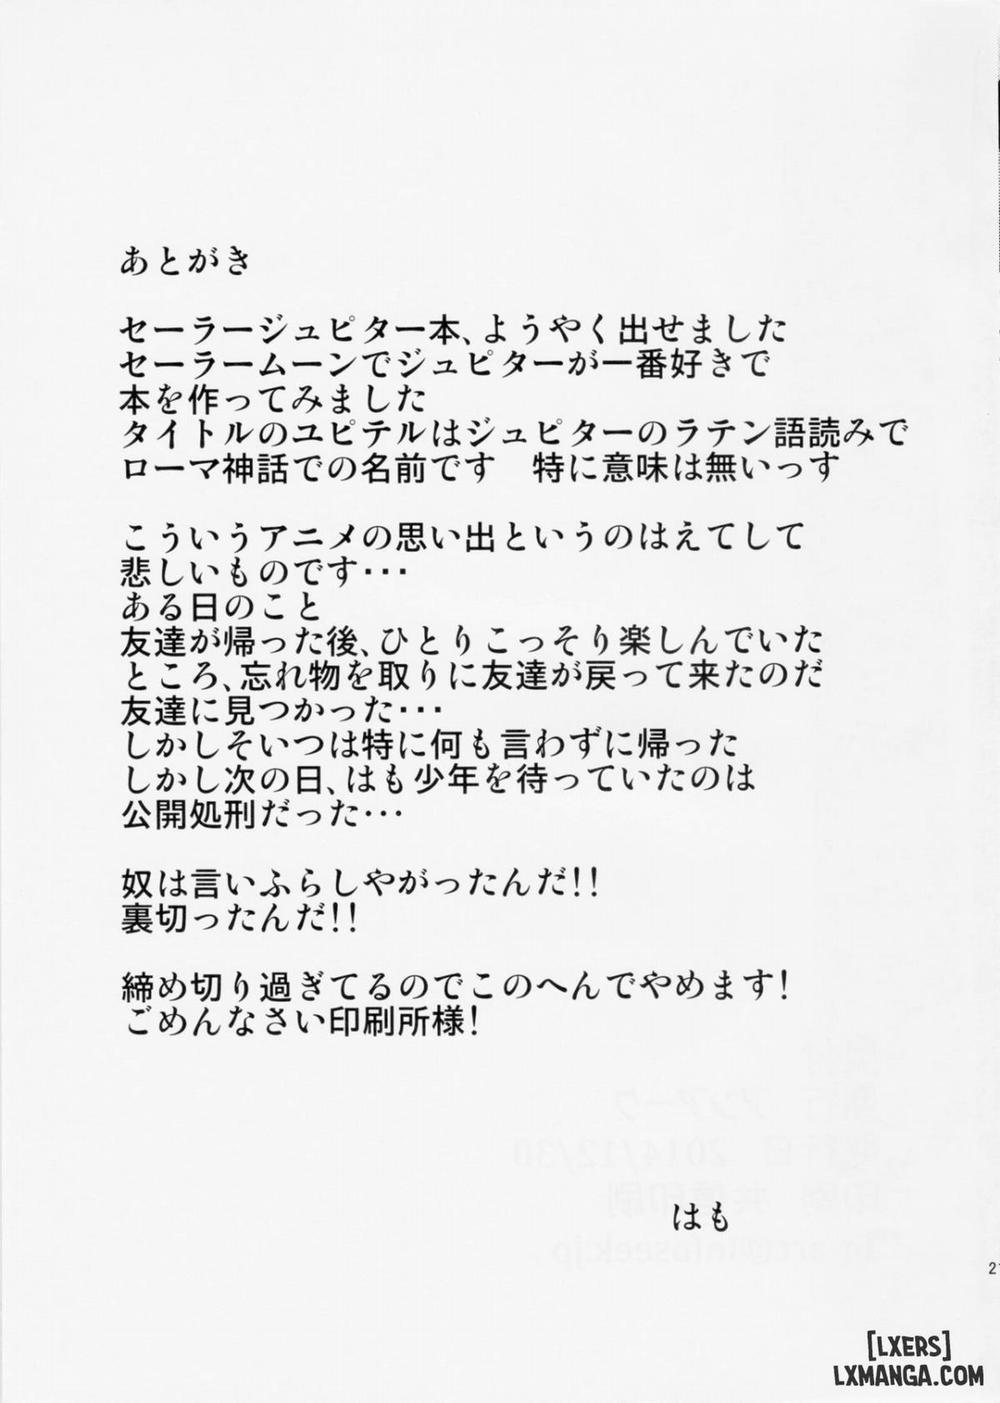 あとがき
セーラージュピター本、ようやく出せました
セーラームーンでジュピターが一番好きで
本を作ってみました
タイトルのユピテルはジュピターのラテン語読みで
ローマ神話での名前です　特に意味は無いっす
こういうアニメの思い出というのはえてして
悲しいものです･･･
ある日のこと
友達が帰った後、ひとりこっそり楽しんでいた
ところ、忘れ物を取りに友達が戻って来たのだ
友達に見つかった･･･
しかしそいつは特に何も言わずに帰った
しかし次の日、はも少年を待っていたのは
公開処刑だった･･･
奴は言いふらしやがったんだ!!
裏切ったんだ!!
締め切り過ぎてるのでこのへんでやめます!
ごめんなさい印刷所様!
はも
[LXERS]
LXMANGA.COM